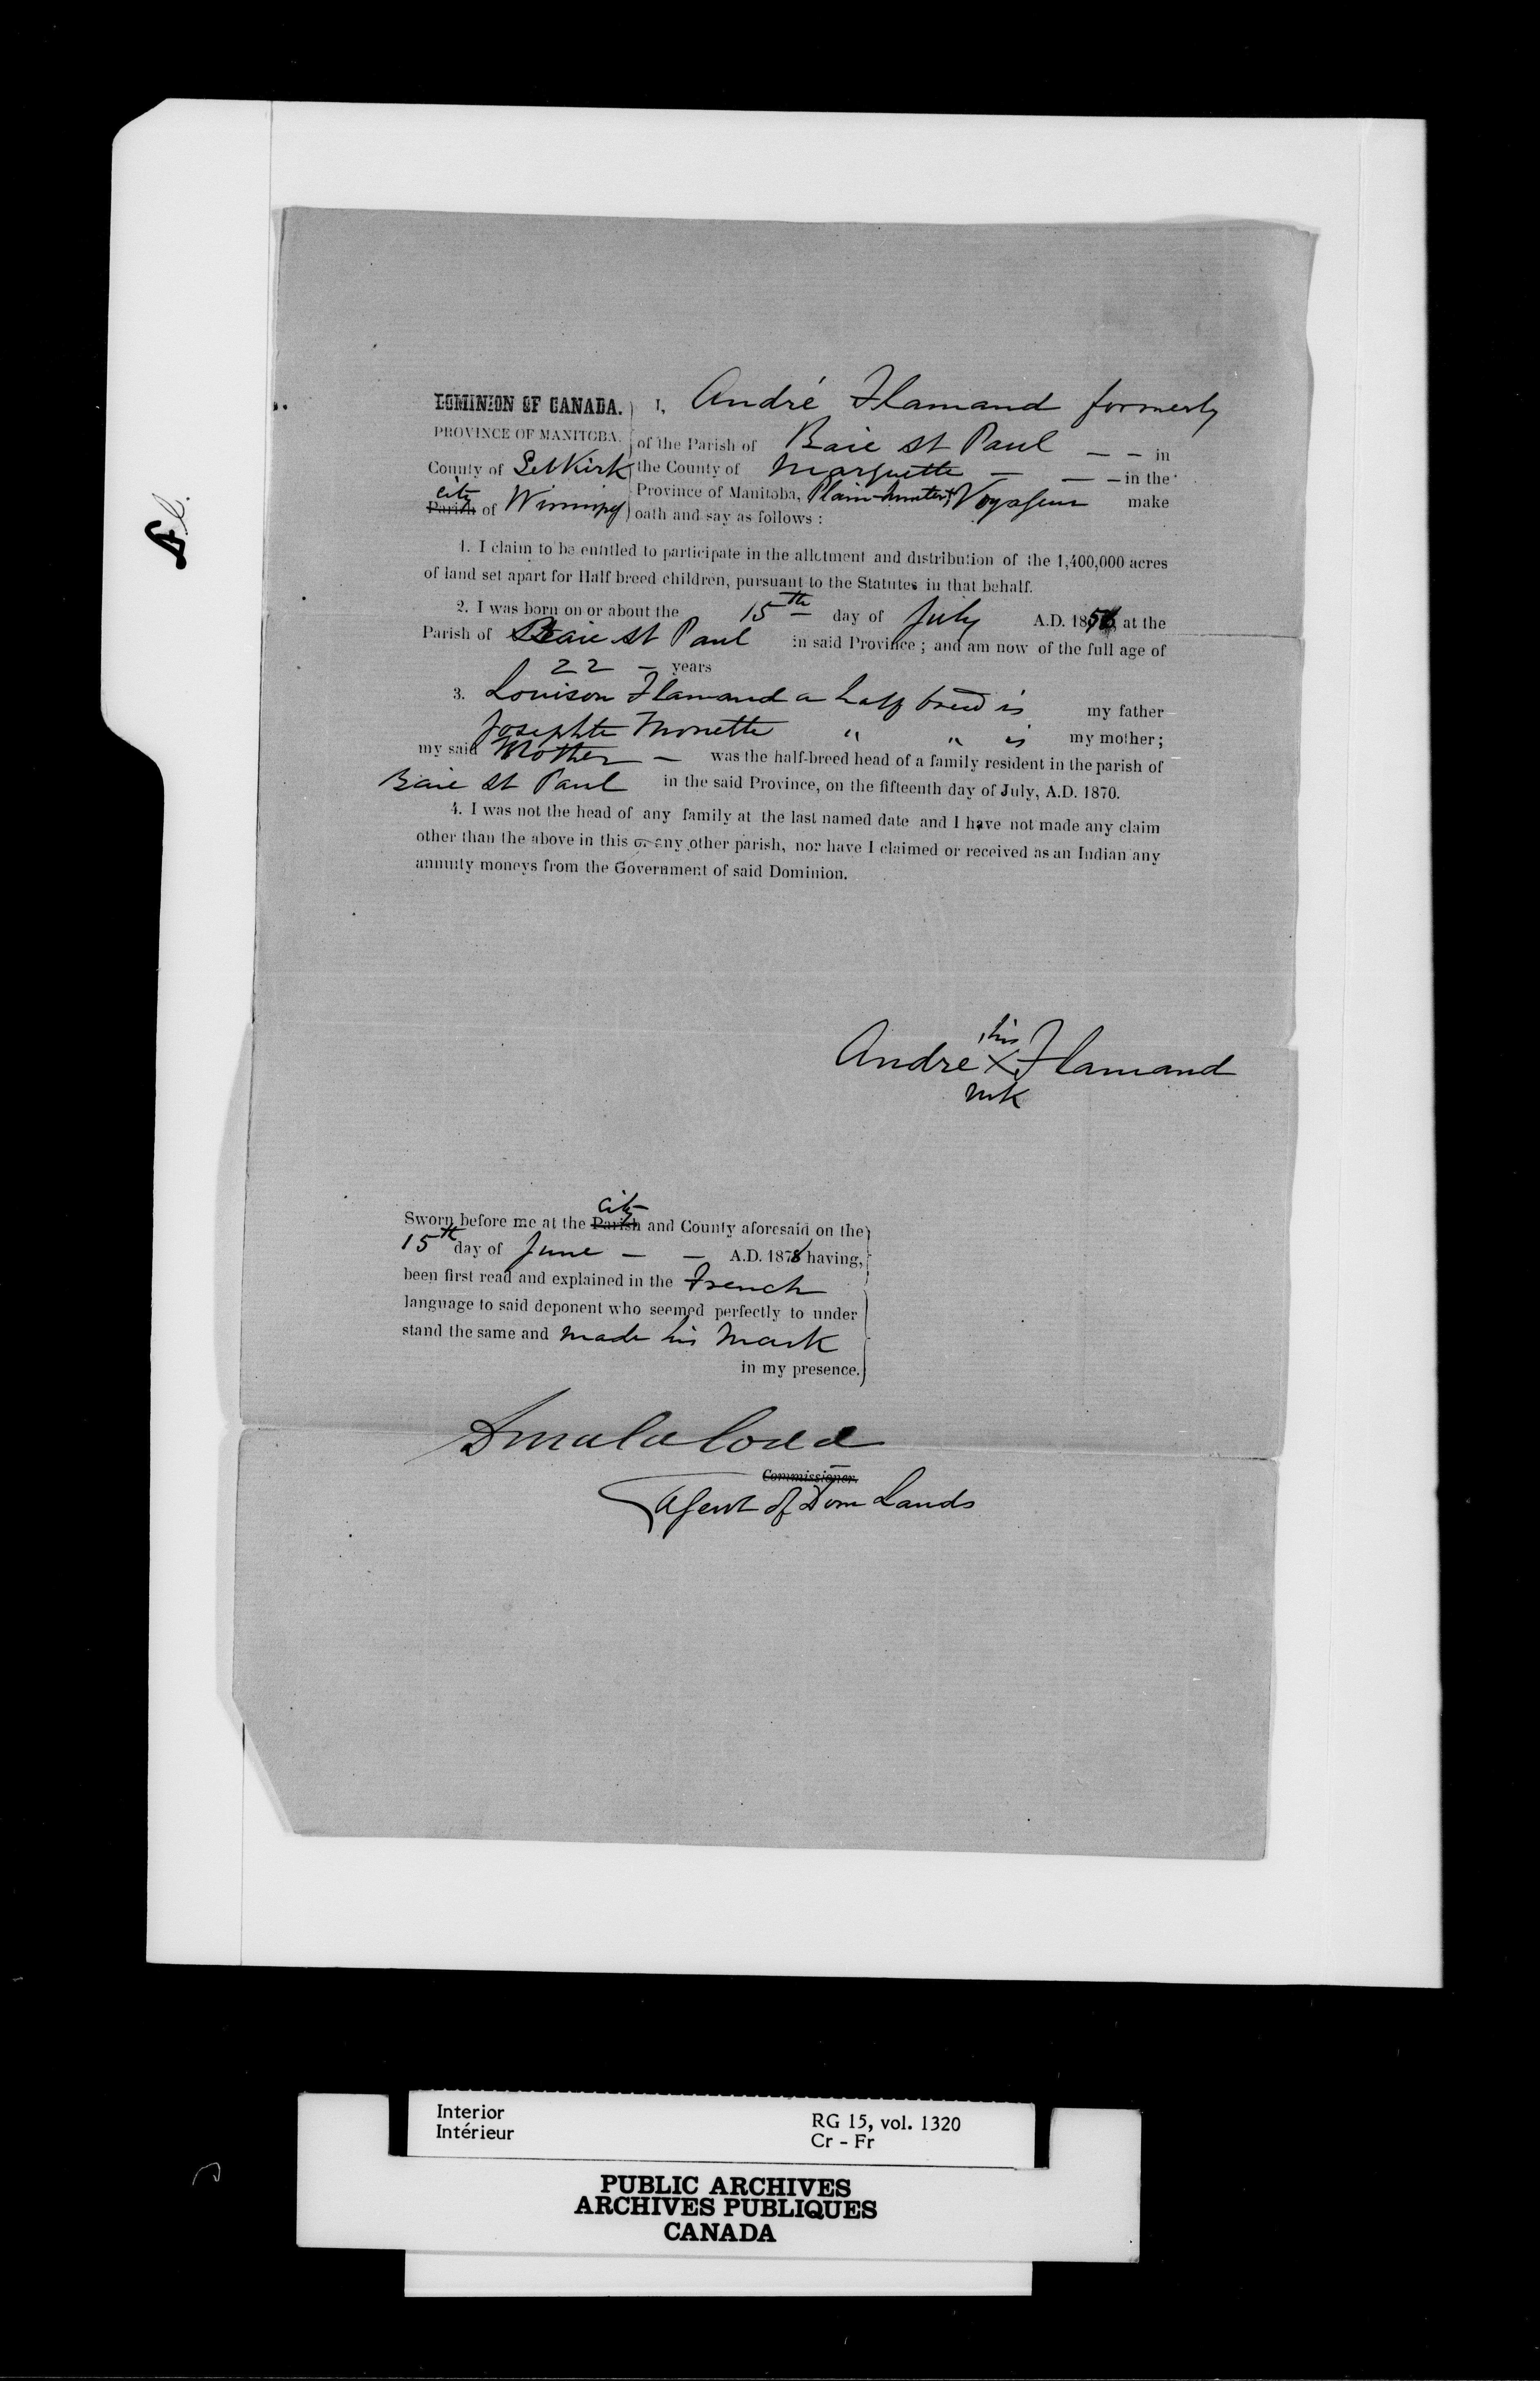 DOMINION OF CANADA. I, André Flamand formerly
PROVINCE OF MANITOBA. of the Parish of Baie St Paul — — in
County of Selkirk the County of Marquette — — — in the
City Province of Manitoba, Plain-hunter & Voyageur make
Parish of Winnipeg oath and say as follows :
1. I claim to be entitled to participate in the allotment and distribution of the 1,400,000 acres
of land set apart for Half breed children, pursuant to the Statutes in that behalf.
2. I was born on or about the 15th day of July A.D. 1856, at the
Parish of Baie St Paul in said Province ; and am now of the full age of
22 — years
3. Louison Flamand a half breed is my father
Josephte Monette " " is my mother ;
my said Mother — was the half-breed head of a family resident in the parish of
Baie St Paul in the said Province, on the fifteenth day of July, A.D. 1870.
4. I was not the head of any family at the last named date and I have not made any claim
other than the above in this or any other parish, nor have I claimed or received as an Indian any
annuity moneys from the Government of said Dominion.
his
André X Flamand
mk
City
Sworn before me at the Parish and County aforesaid on the
15th day of June — — A.D. 1878 having,
been first read and explained in the French
language to said deponent who seemed perfectly to under
stand the same and made his mark
in my presence.
Codd
Commissioner.
Agent of Dom Lands
Interior RG 15, vol. 1320
Intérieur Cr - Fr
PUBLIC ARCHIVES
ARCHIVES PUBLIQUES
CANADA